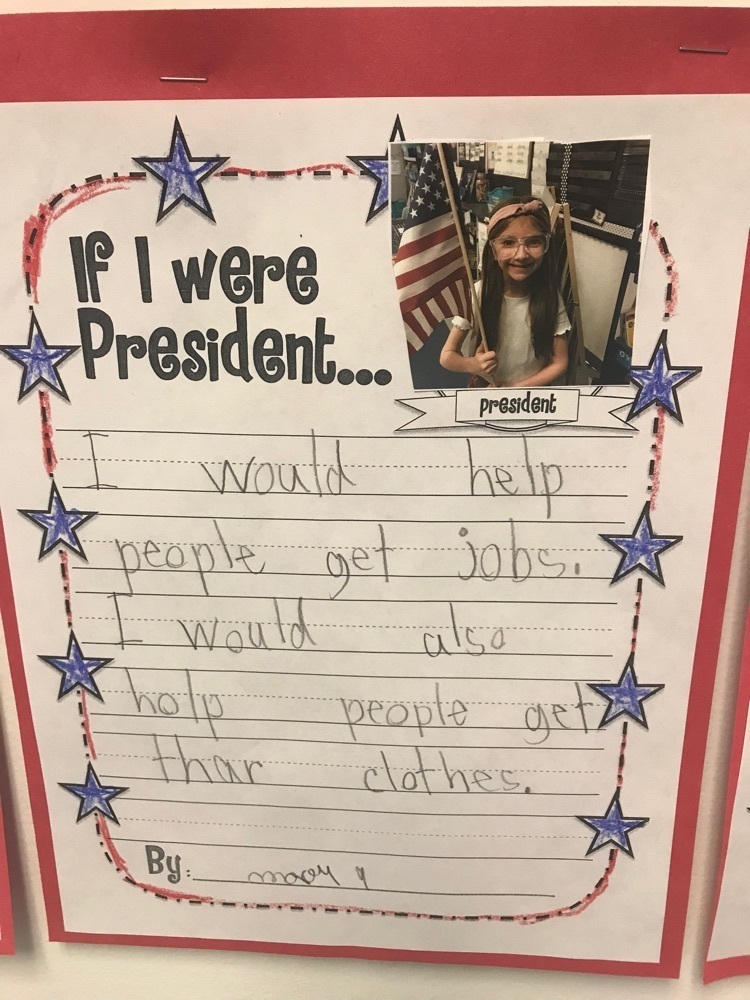 If I were
President...
president
I would help
people get jobs.
I would also
holp people get
thar clothes.
By: